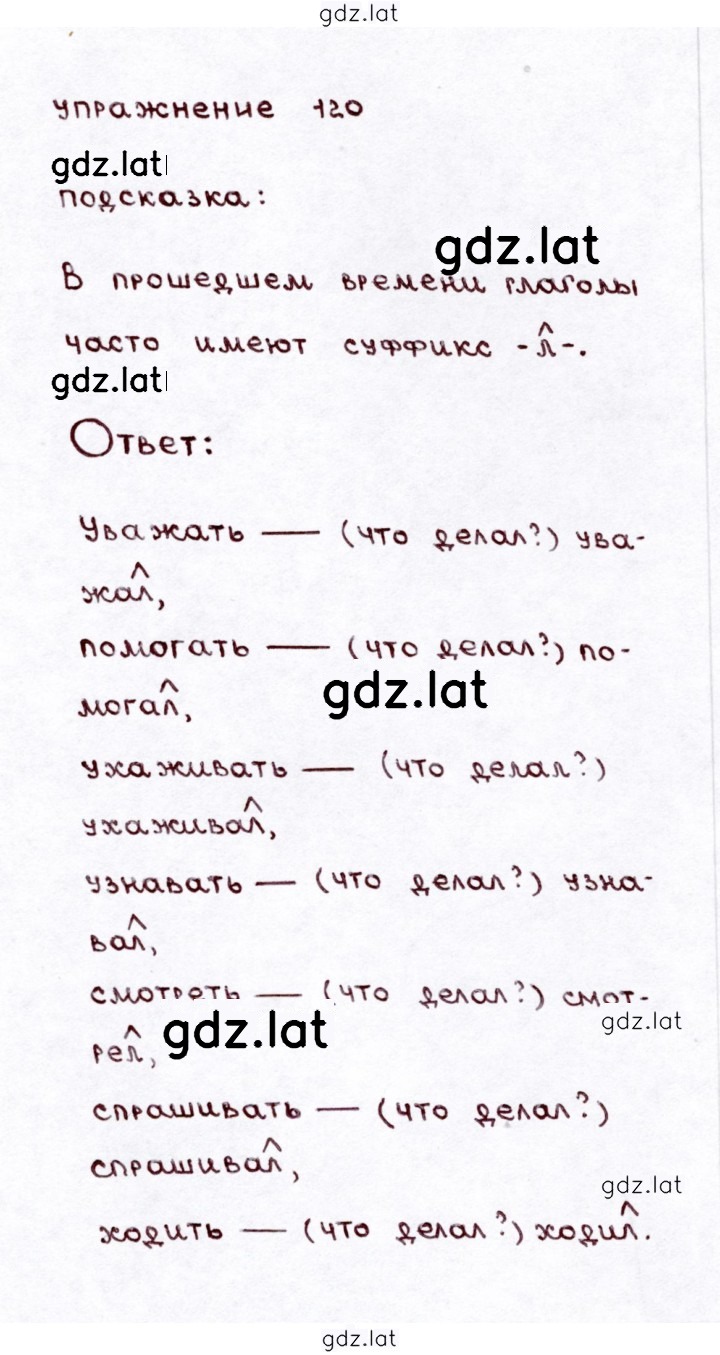 gdz.lat
упражнение 120
gdz.lat
подсказка:
gdz.lat
В прошедшем времени глаголы
часто имеют суффикс -л-.
gdz.lat
Ответ:
Уважать — (что делал?) ува-
жал,
помогать — (что делал?) по-
gdz.lat
могал,
ухаживать — (что делал?)
ухаживал,
узнавать — (что делал?) узна-
вал,
смотреть — (что делал?) смот-
gdz.lat
gdz.lat
рел,
спрашивать — (что делал?)
спрашивал,
gdz.lat
ходить — (что делал?) ходил.
gdz.lat